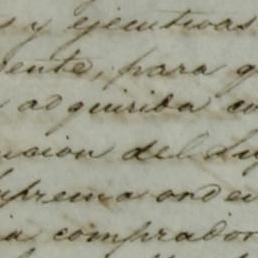 s y ejecutivas
ente, para q
adquirida co
nsion del Su
uprema orden
ia comprador